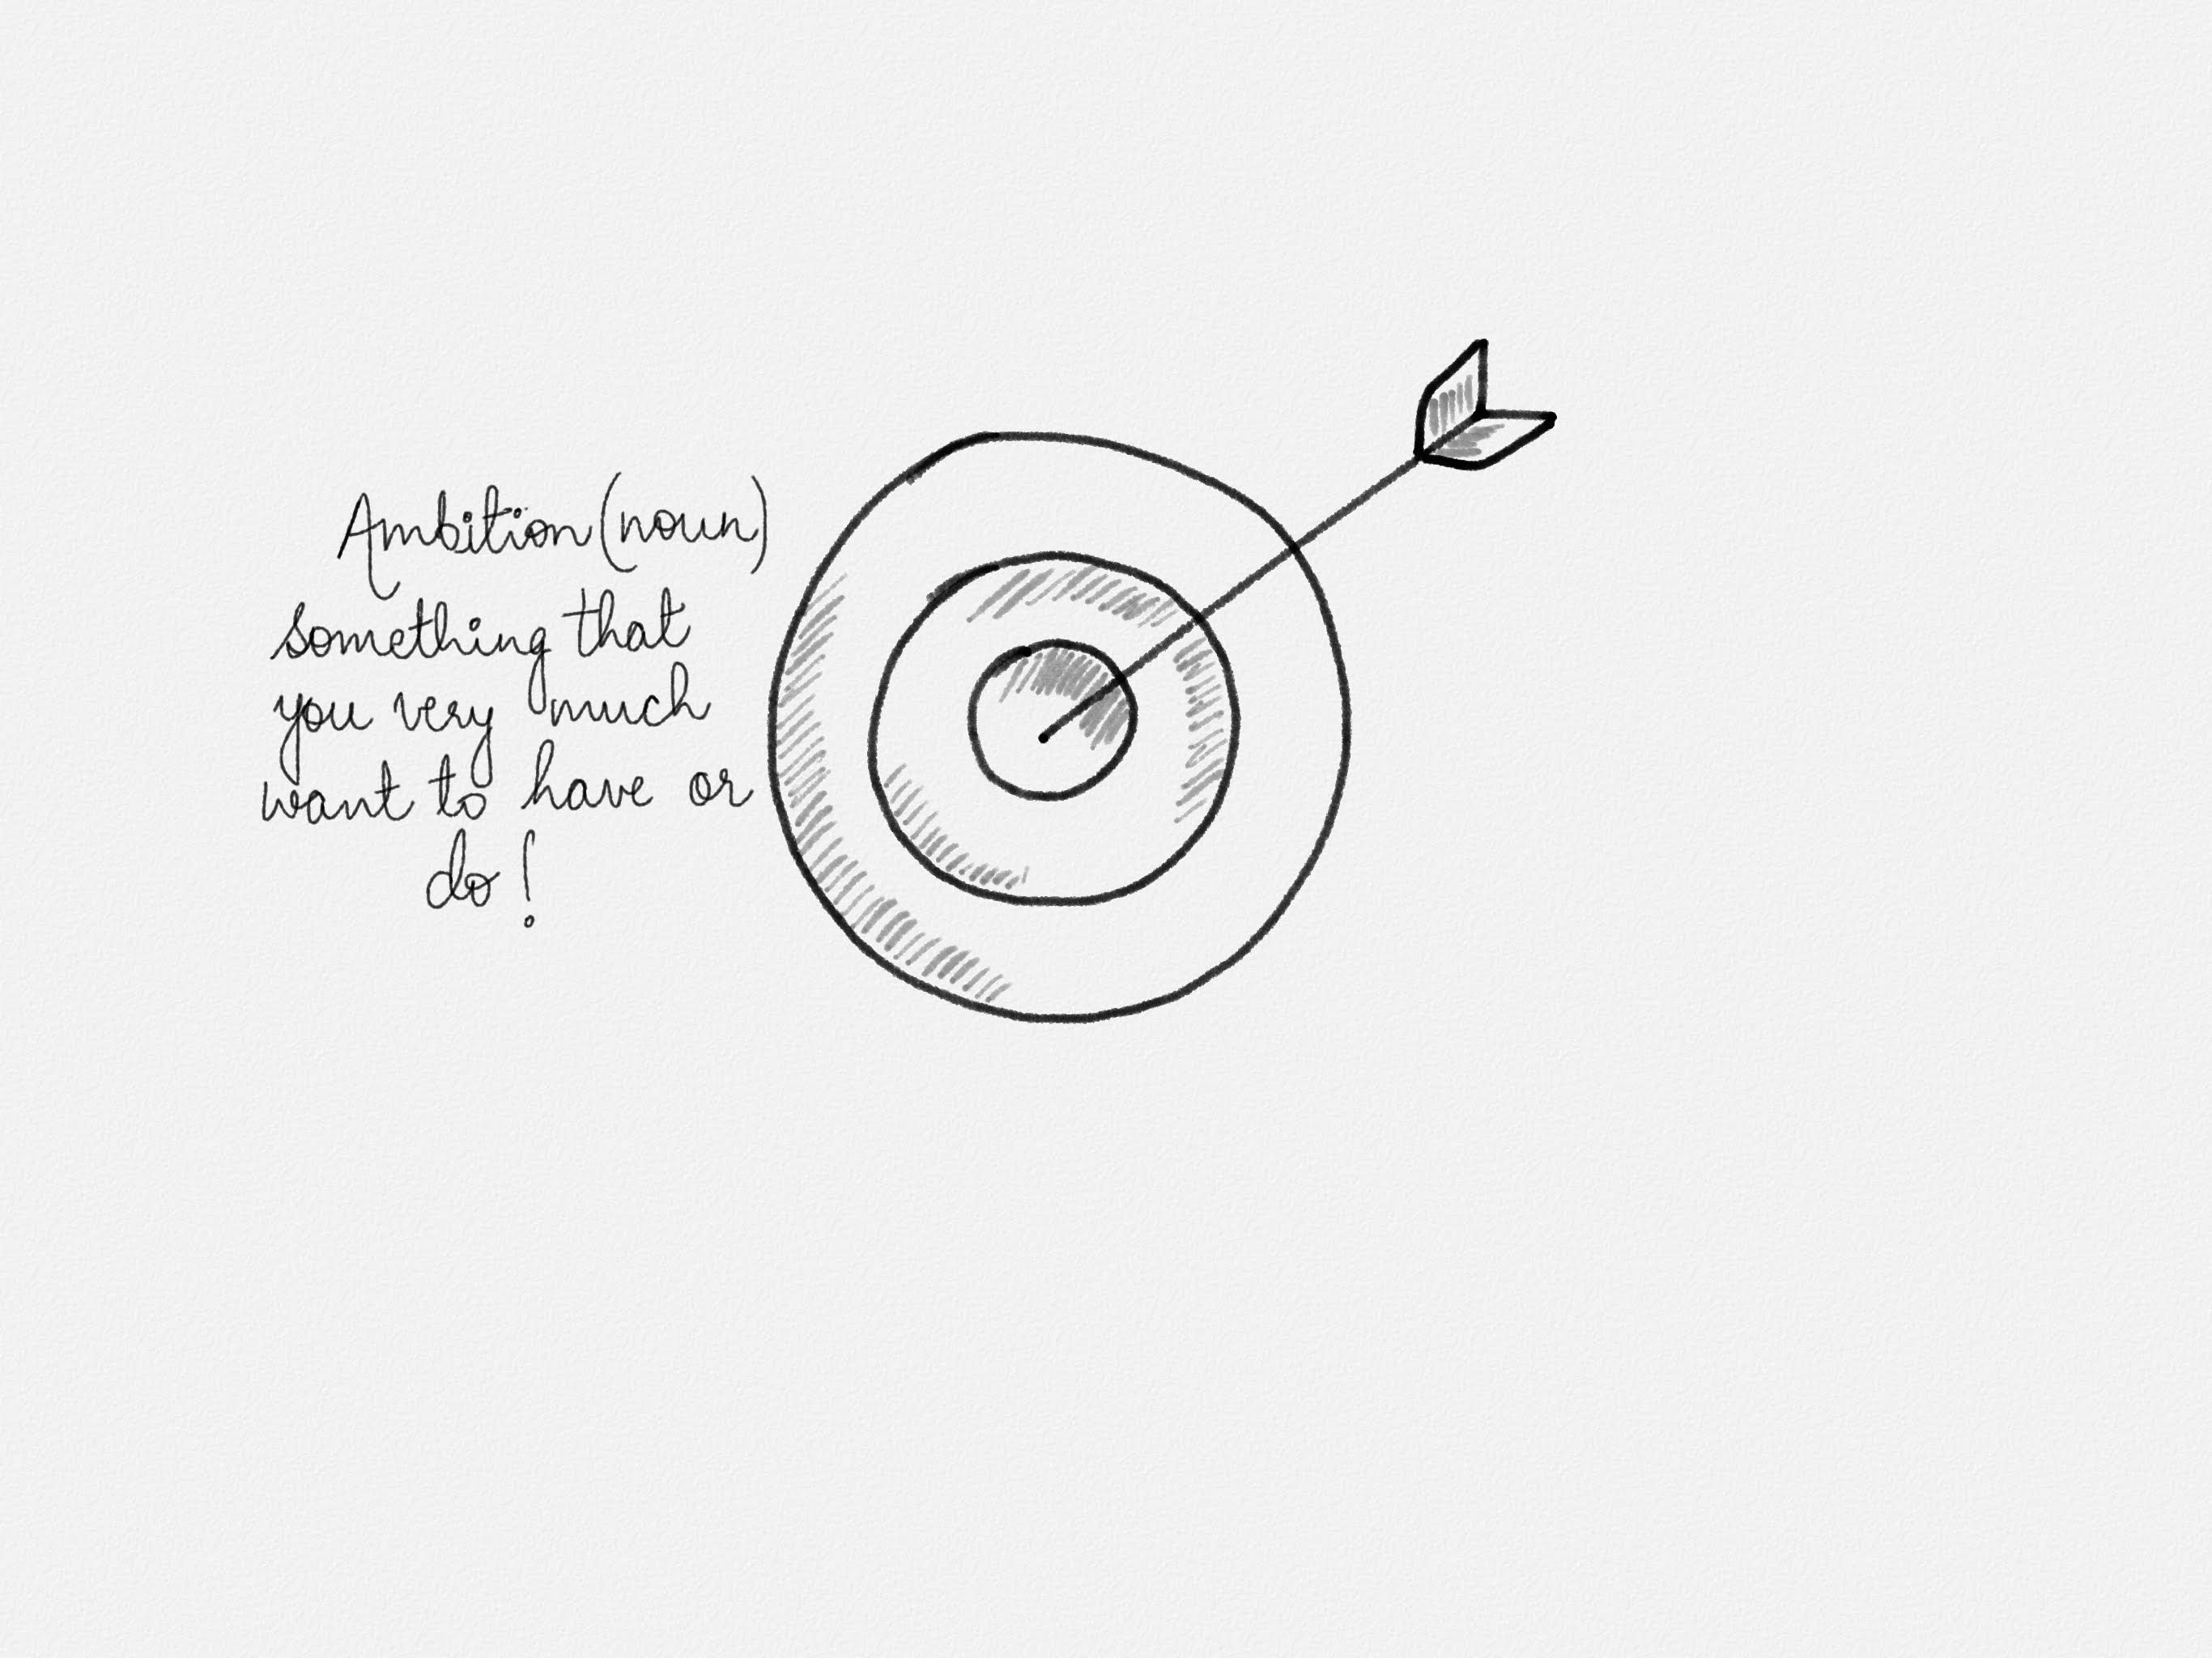 Ambition (noun)
something that
you very much
want to have or
do!